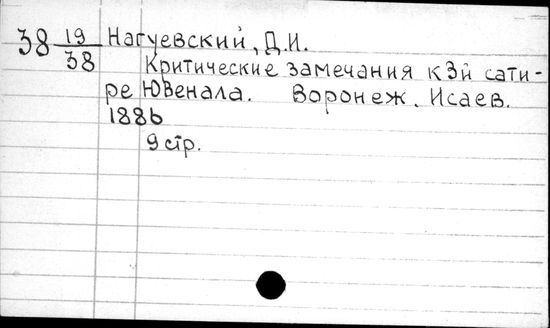 38 19/38 Нагуевский, Д.И.
Критические замечания к 3й сати-
ре Ювенала. Воронеж. Исаев.
1886
9 стр.